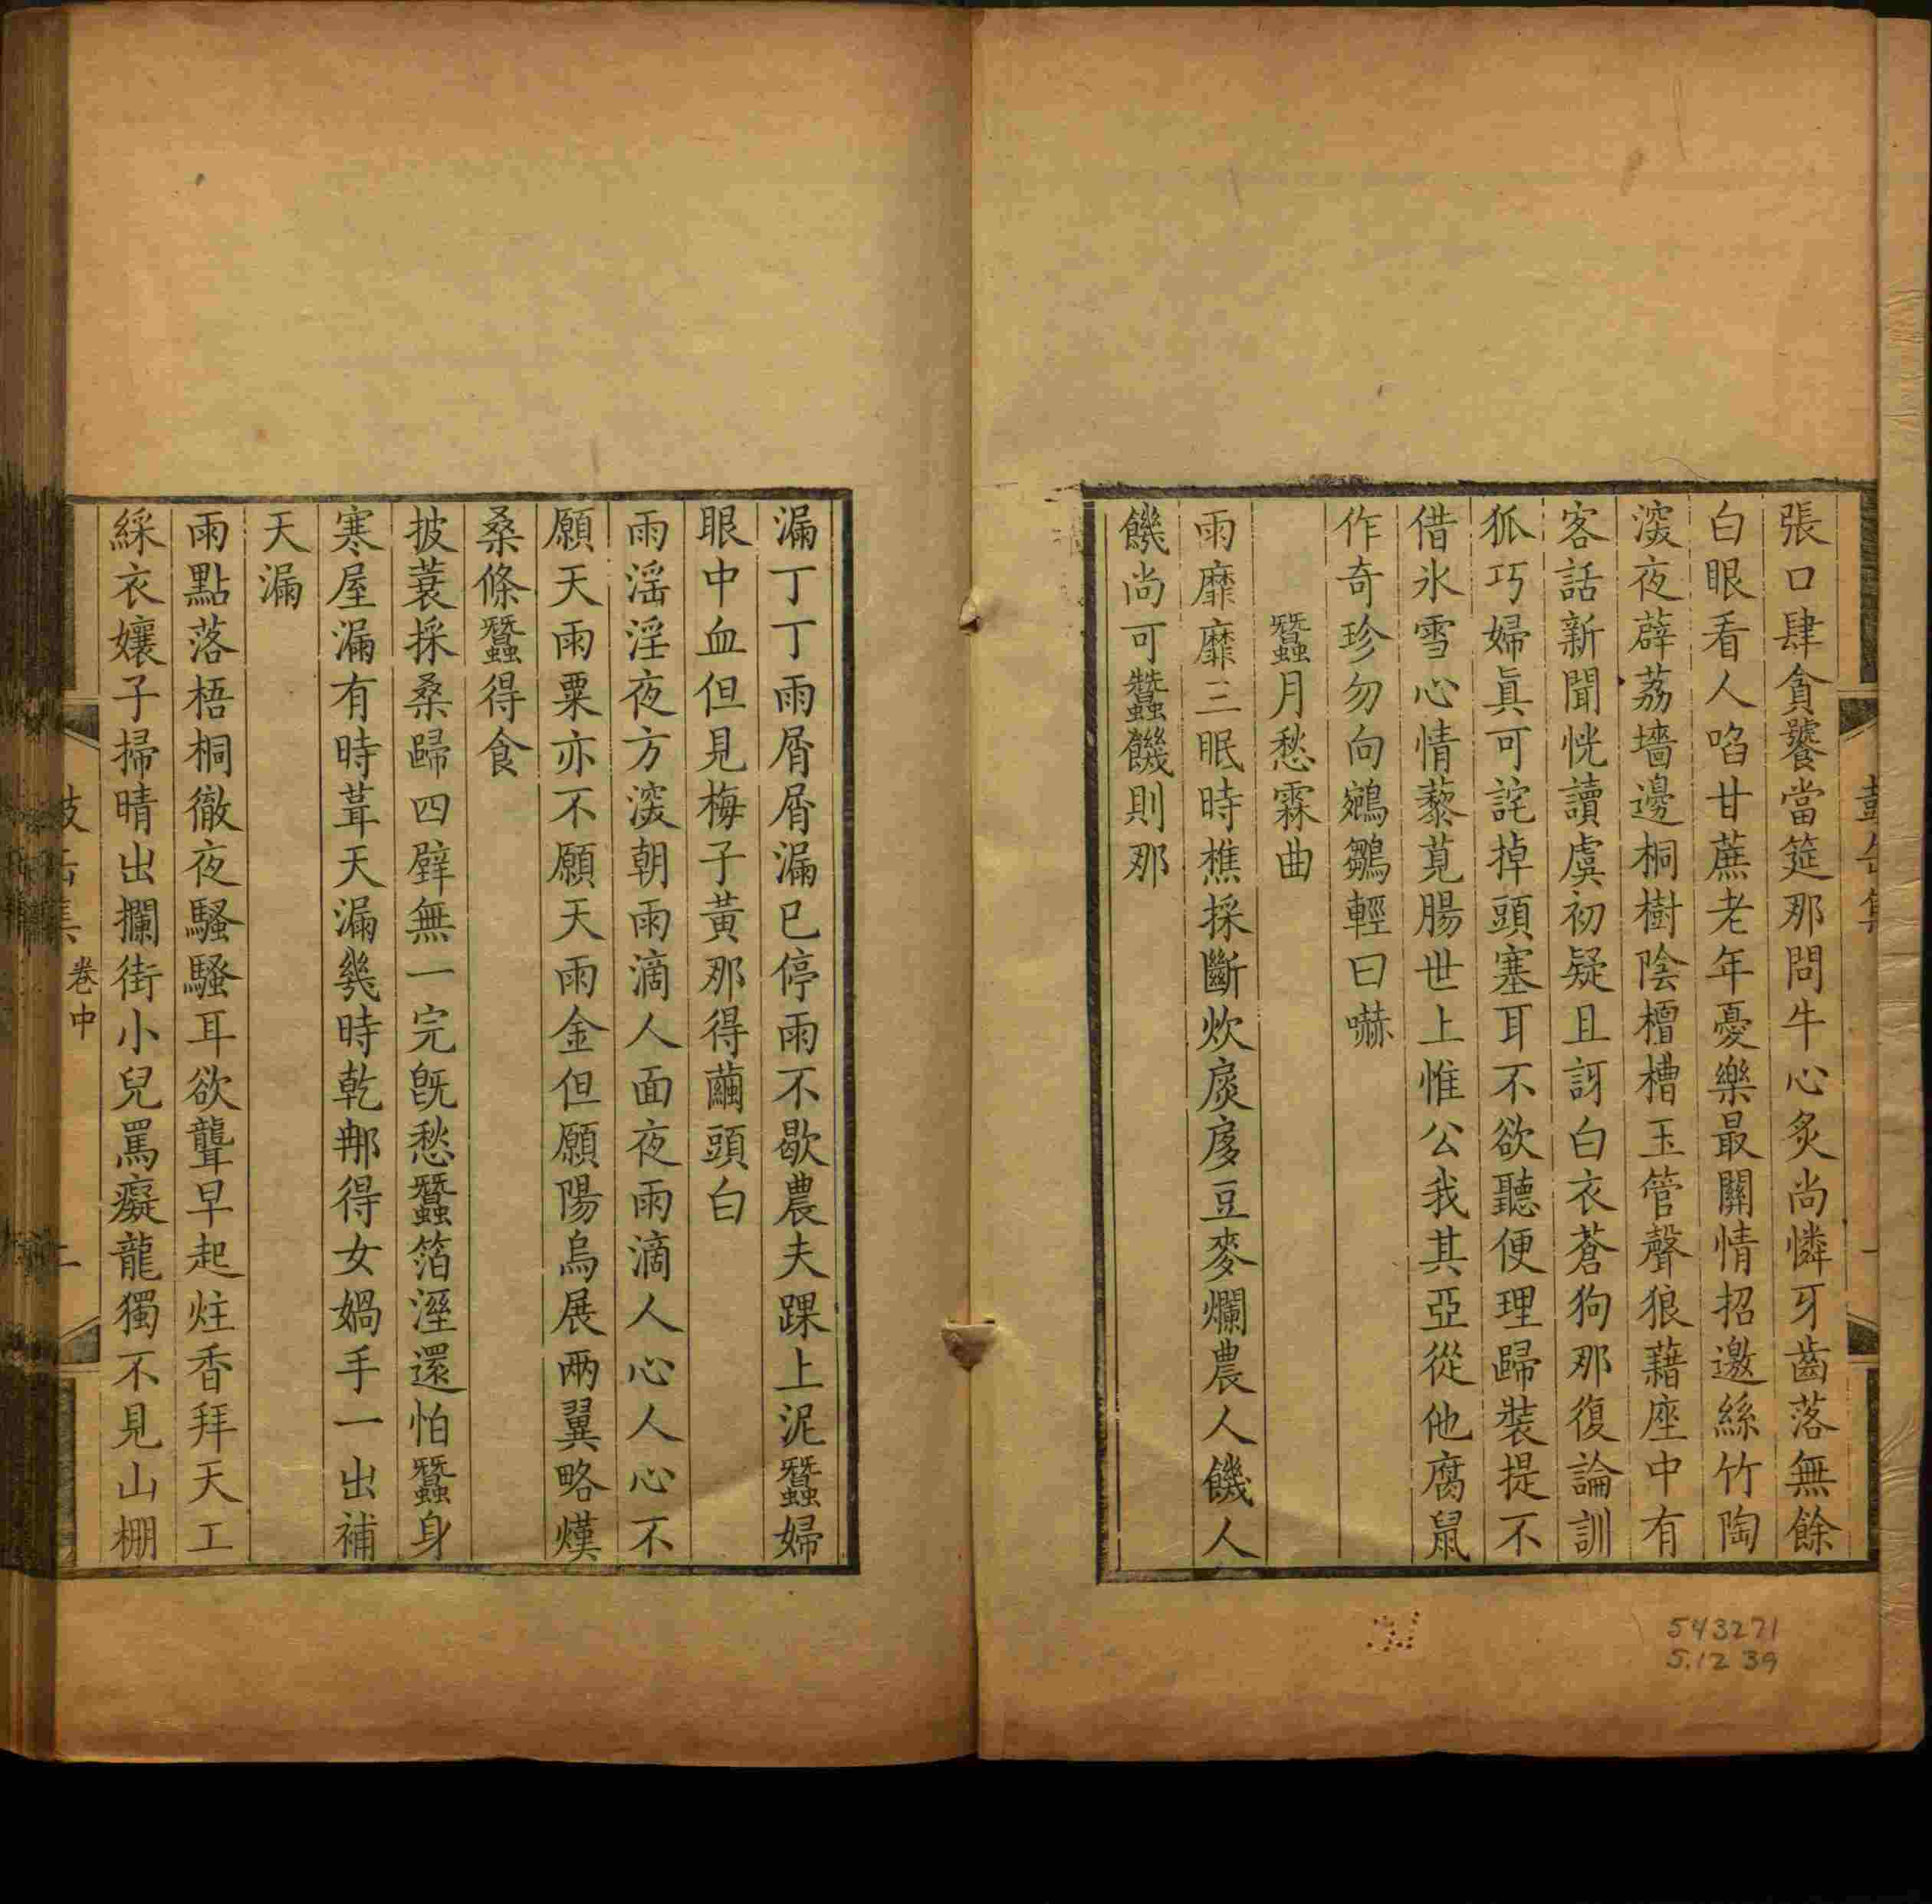 張口肆貪饕當筵那問牛心炙尚憐牙齒落無餘
白眼看人啗甘蔗老年憂樂最關情招邀絲竹陶
湥夜薜荔墻邊桐樹陰檀槽玉管聲狼藉座中有
客話新聞恍讀虞初疑且訝白衣蒼狗那復論訓
狐巧婦眞可詫掉頭塞耳不欲聽便理歸裝提不
借氷雪心情藜莧腸世上惟公我其亞從他腐鼠
作奇珍勿向鵷鶵輕曰嚇
蠶月愁霖曲
雨靡靡三眠時樵採斷炊扊扅豆麥爛農人饑人
饑尚可蠶饑則那
漏丁丁雨屑屑漏已停雨不歇農夫踝上泥蠶婦
眼中血但見梅子黃那得繭頭白
雨淫淫夜方湥朝雨滴人面夜雨滴人心人心不
願天雨粟亦不願天雨金但願陽烏展兩翼略熯
桑條蠶得食
披蓑採桑歸四壁無一完旣愁蠶箔溼還怕蠶身
寒屋漏有時葺天漏幾時乾那得女媧手一出補
天漏
雨點落梧桐徹夜騷騷耳欲聾早起炷香拜天工
綵衣孃子掃晴出攔街小兒罵癡龍獨不見山棚
卷中
543271
5.12 39